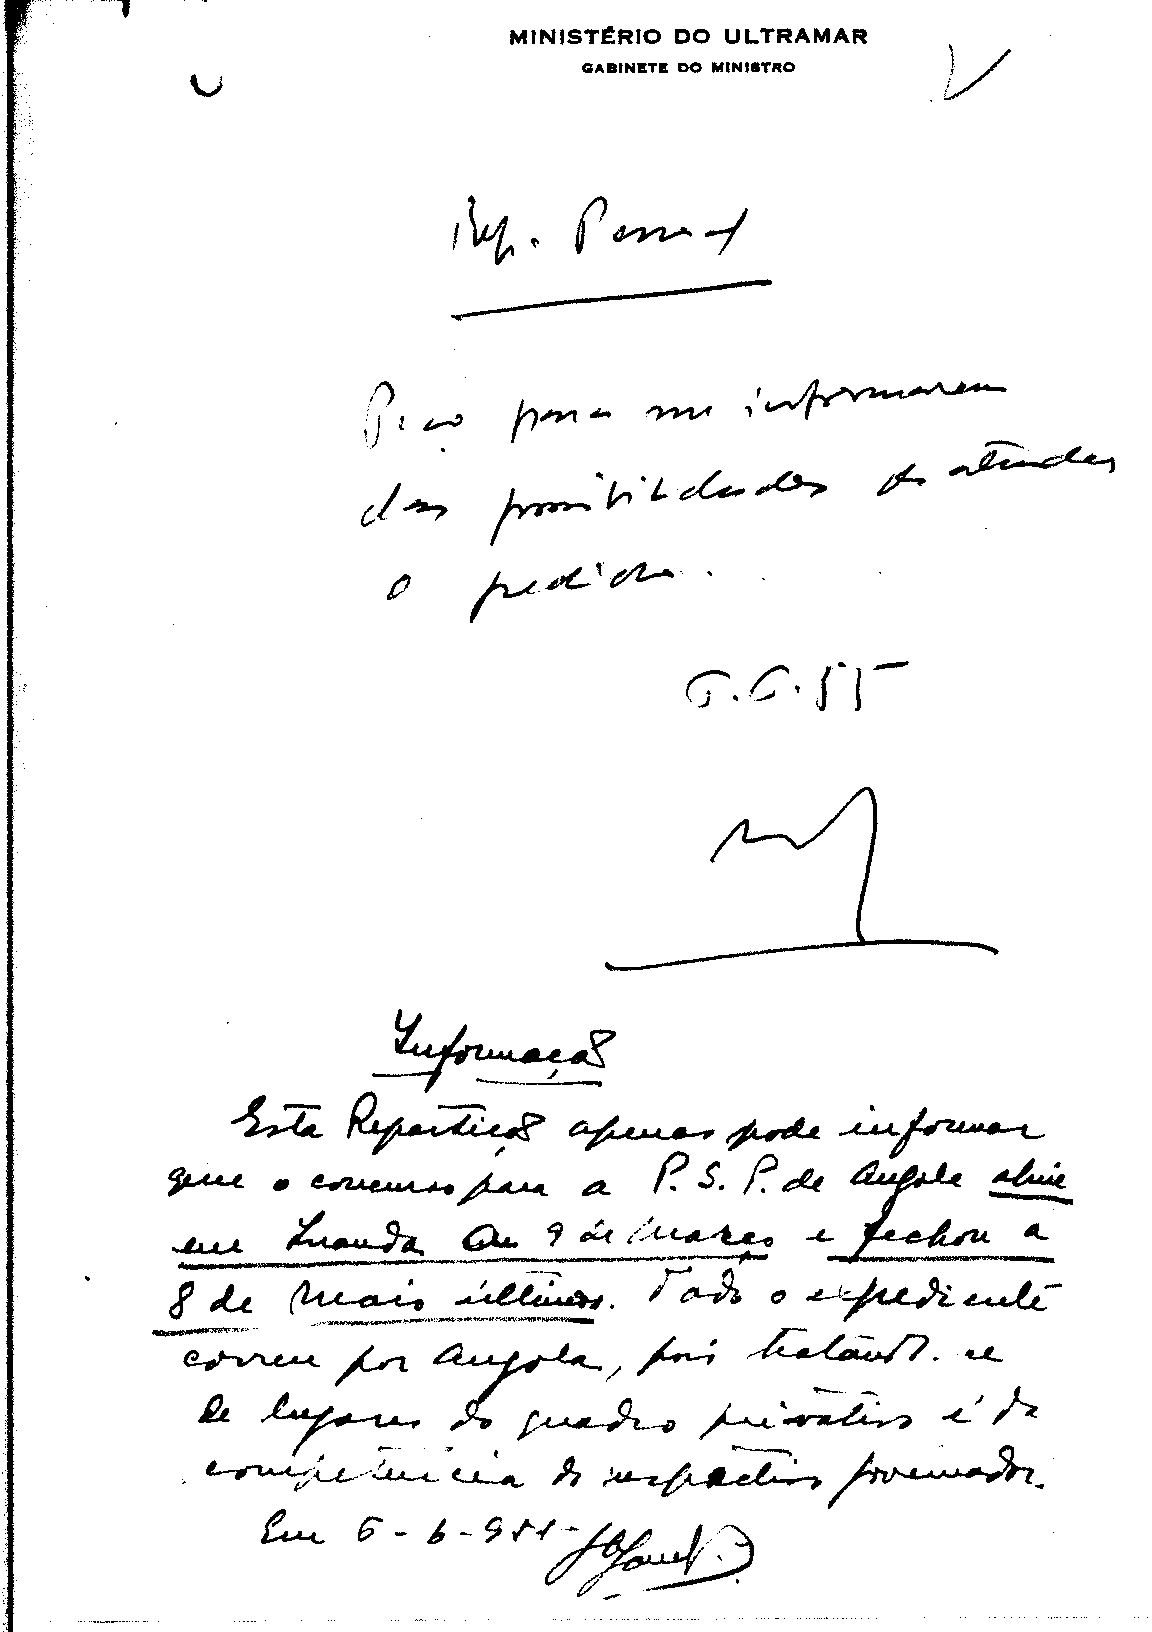 MINISTÉRIO DO ULTRAMAR
GABINETE DO MINISTRO
Rep. Pessoal
Peço para me informarem
das possibilidades de atender
o pedido.
6.6.55
Informação
Esta Repartição apenas pode informar
que o concurso para a P. S. P. de Angola abriu
em Luanda em 9 de Março e fechou a
8 de Maio último. Todo o expediente
correu por Angola, pois tratando-se
de lugares do quadro privativo é da
competência do respectivo governador.
Em 6-6-955-